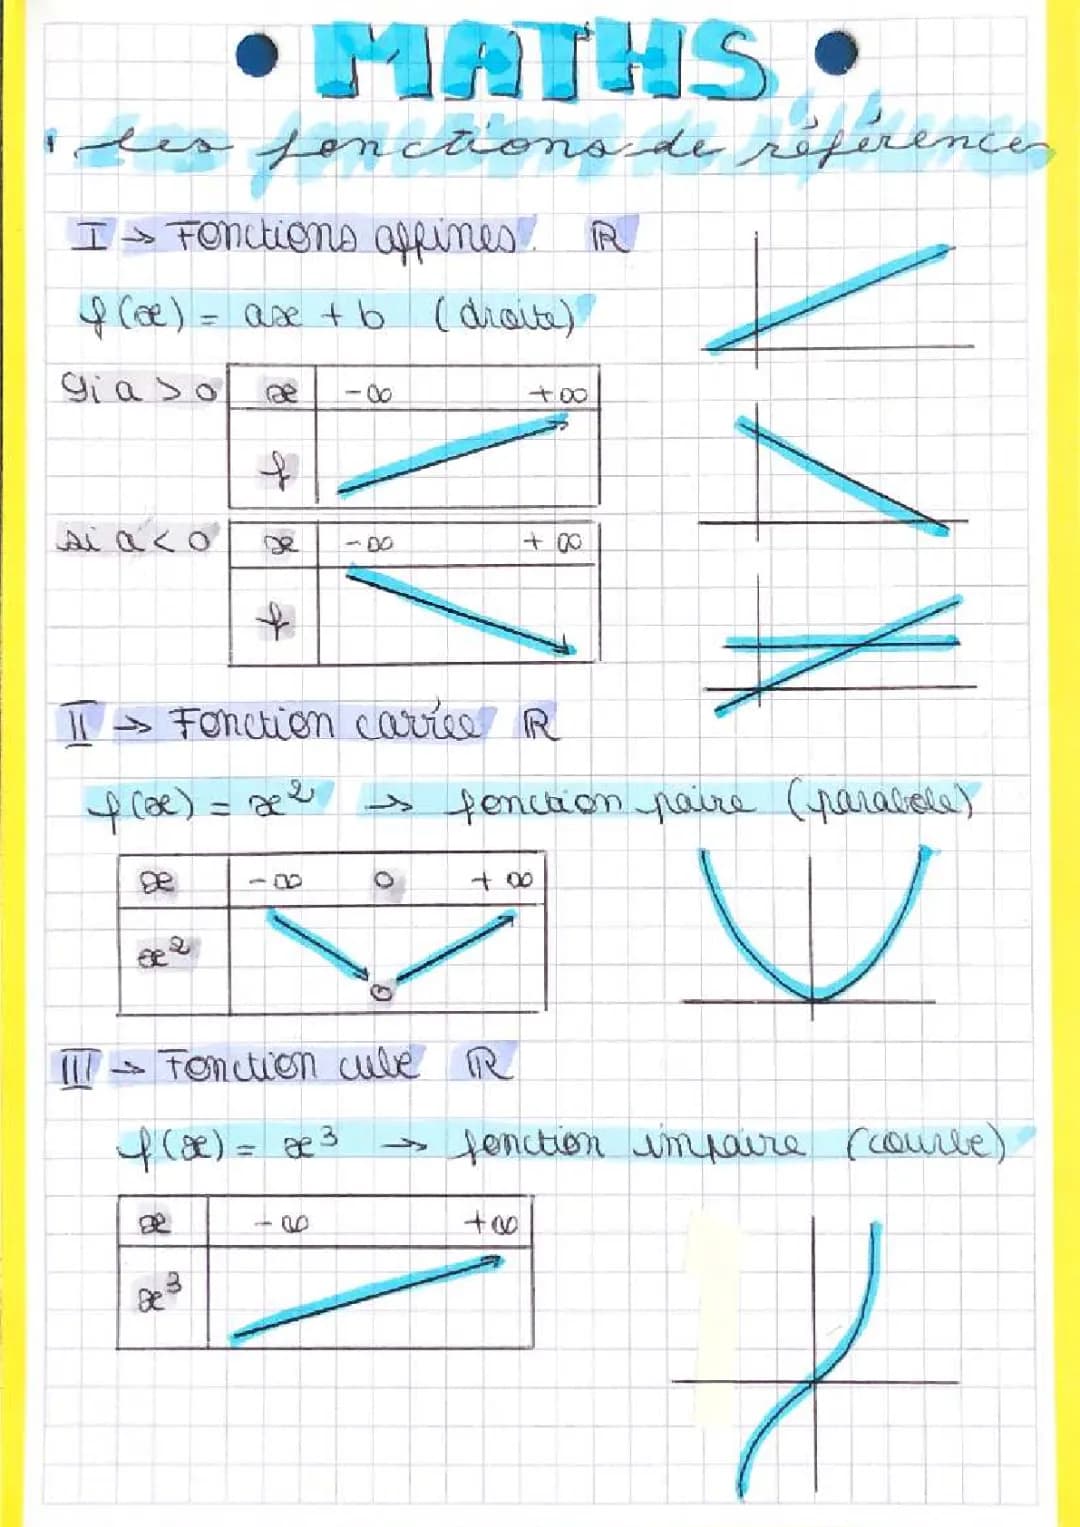 • MATHS •
les fonctions de références
I → Fonctions affines. ℝ
f(x) = ax + b (droite)
Si a > 0
x -∞ +∞
f
si a < 0
x -∞ +∞
f
II → Fonction carrée ℝ
f(x) = x² → fonction paire (parabole)
x -∞ 0 +∞
x²
0
III → Fonction cube ℝ
f(x) = x³ → fonction impaire (courbe)
x -∞ +∞
x³